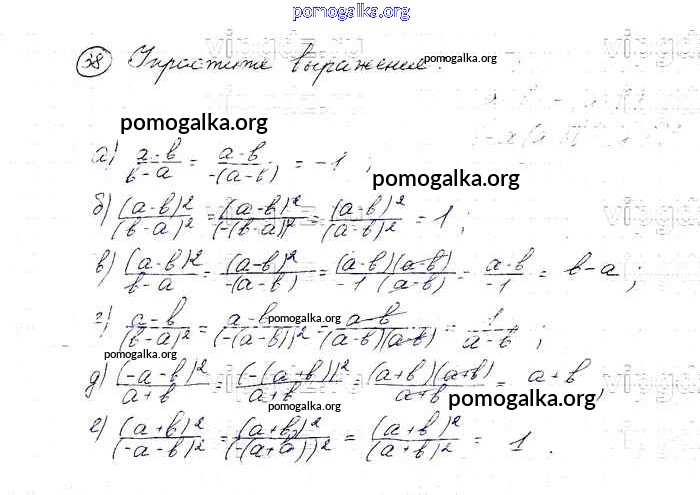 pomogalka.org
38 Упростите выражение: pomogalka.org
pomogalka.org
а) (a-b)/(b-a) = (a-b)/(-(a-b)) = -1 ;
pomogalka.org
б) (a-b)²/(b-a)² = (a-b)²/(-(b-a))² = (a-b)²/(a-b)² = 1 ;
в) (a-b)²/(b-a) = (a-b)²/(-(a-b)) = (a-b)(a-b)/(-1 (a-b)) = (a-b)/(-1) = b-a ;
pomogalka.org
г) (a-b)/(b-a)² = (a-b)/(-(a-b))² = (a-b)/((a-b)(a-b)) = 1/(a-b) ;
pomogalka.org
д) (-a-b)²/(a+b) = (-(a+b))²/(a+b) = (a+b)(a+b)/(a+b) = a+b ,
pomogalka.org
pomogalka.org
е) (a+b)²/(-a-b)² = (a+b)²/(-(a+a))² = (a+b)²/(a+b)² = 1 .